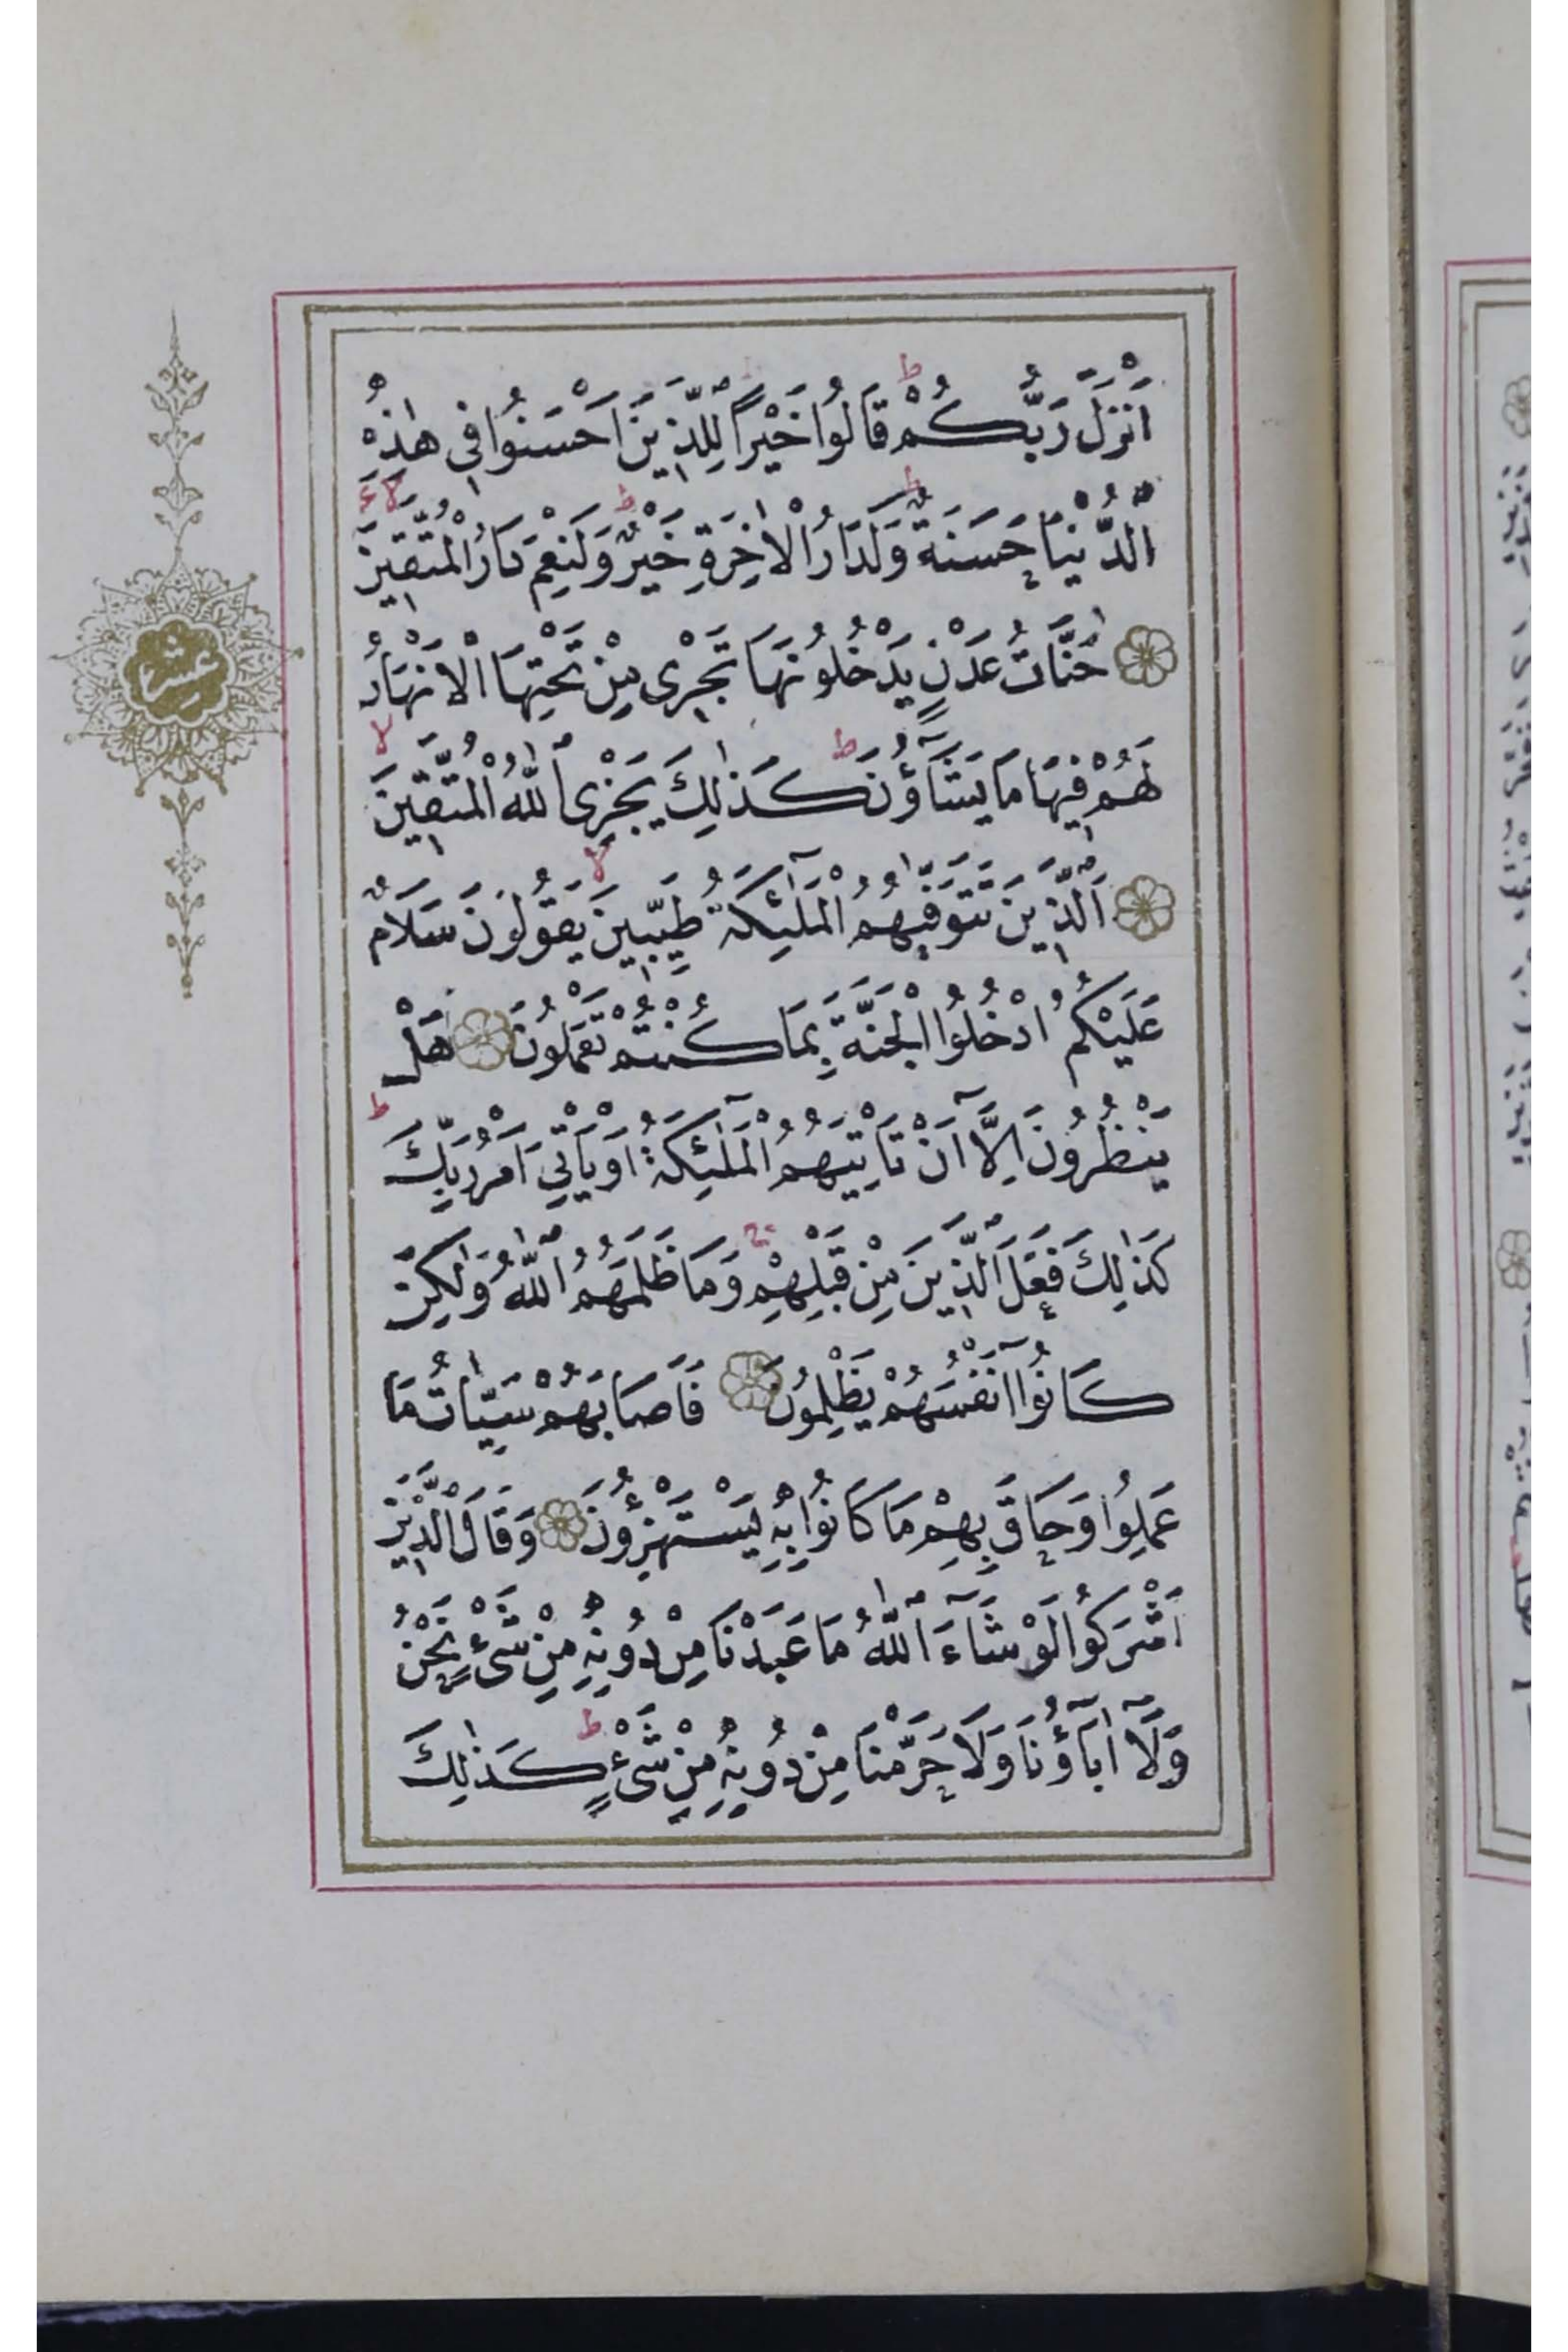 اَنْزَلَ رَبُّكُمْ قَالُوا خَيْرًا لِلَّذِينَ اَحْسَنُوا فِي هٰذِهِ
الدُّنْيَا حَسَنَةٌ وَلَدَارُ الْاٰخِرَةِ خَيْرٌ وَلَنِعْمَ دَارُ الْمُتَّقِينَ
جَنَّاتُ عَدْنٍ يَدْخُلُونَهَا تَجْرِى مِنْ تَحْتِهَا الْاَنْهَارُ
لَهُمْ فِيهَا مَا يَشَآؤُنَ كَذٰلِكَ يَجْزِى اللّٰهُ الْمُتَّقِينَ
اَلَّذِينَ تَتَوَفّٰيهُمُ الْمَلٰٓئِكَةُ طَيِّبِينَ يَقُولُونَ سَلَامٌ
عَلَيْكُمُ ادْخُلُوا الْجَنَّةَ بِمَا كُنْتُمْ تَعْمَلُونَ هَلْ
يَنْظُرُونَ اِلَّآ اَنْ تَاْتِيَهُمُ الْمَلٰٓئِكَةُ اَوْ يَاْتِيَ اَمْرُ رَبِّكَ
كَذٰلِكَ فَعَلَ الَّذِينَ مِنْ قَبْلِهِمْ وَمَا ظَلَمَهُمُ اللّٰهُ وَلٰكِنْ
كَانُوٓا اَنْفُسَهُمْ يَظْلِمُونَ فَاَصَابَهُمْ سَيِّاٰتُ مَا
عَمِلُوا وَحَاقَ بِهِمْ مَا كَانُوا بِهِ يَسْتَهْزِؤُنَ وَقَالَ الَّذِينَ
اَشْرَكُوا لَوْ شَآءَ اللّٰهُ مَا عَبَدْنَا مِنْ دُونِهِ مِنْ شَىْءٍ نَحْنُ
وَلَآ اٰبَآؤُنَا وَلَا حَرَّمْنَا مِنْ دُونِهِ مِنْ شَىْءٍ كَذٰلِكَ
عشر